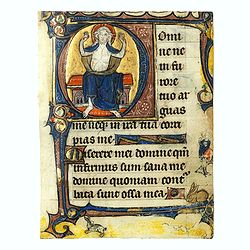 Omi
ne ne
in fu
rore
tuo ar
guas
me neqz in ira tua corri
pias me
Miserere mei domine qm
infirmus sum sana me
domine quoniam con
bata sunt ossa mea